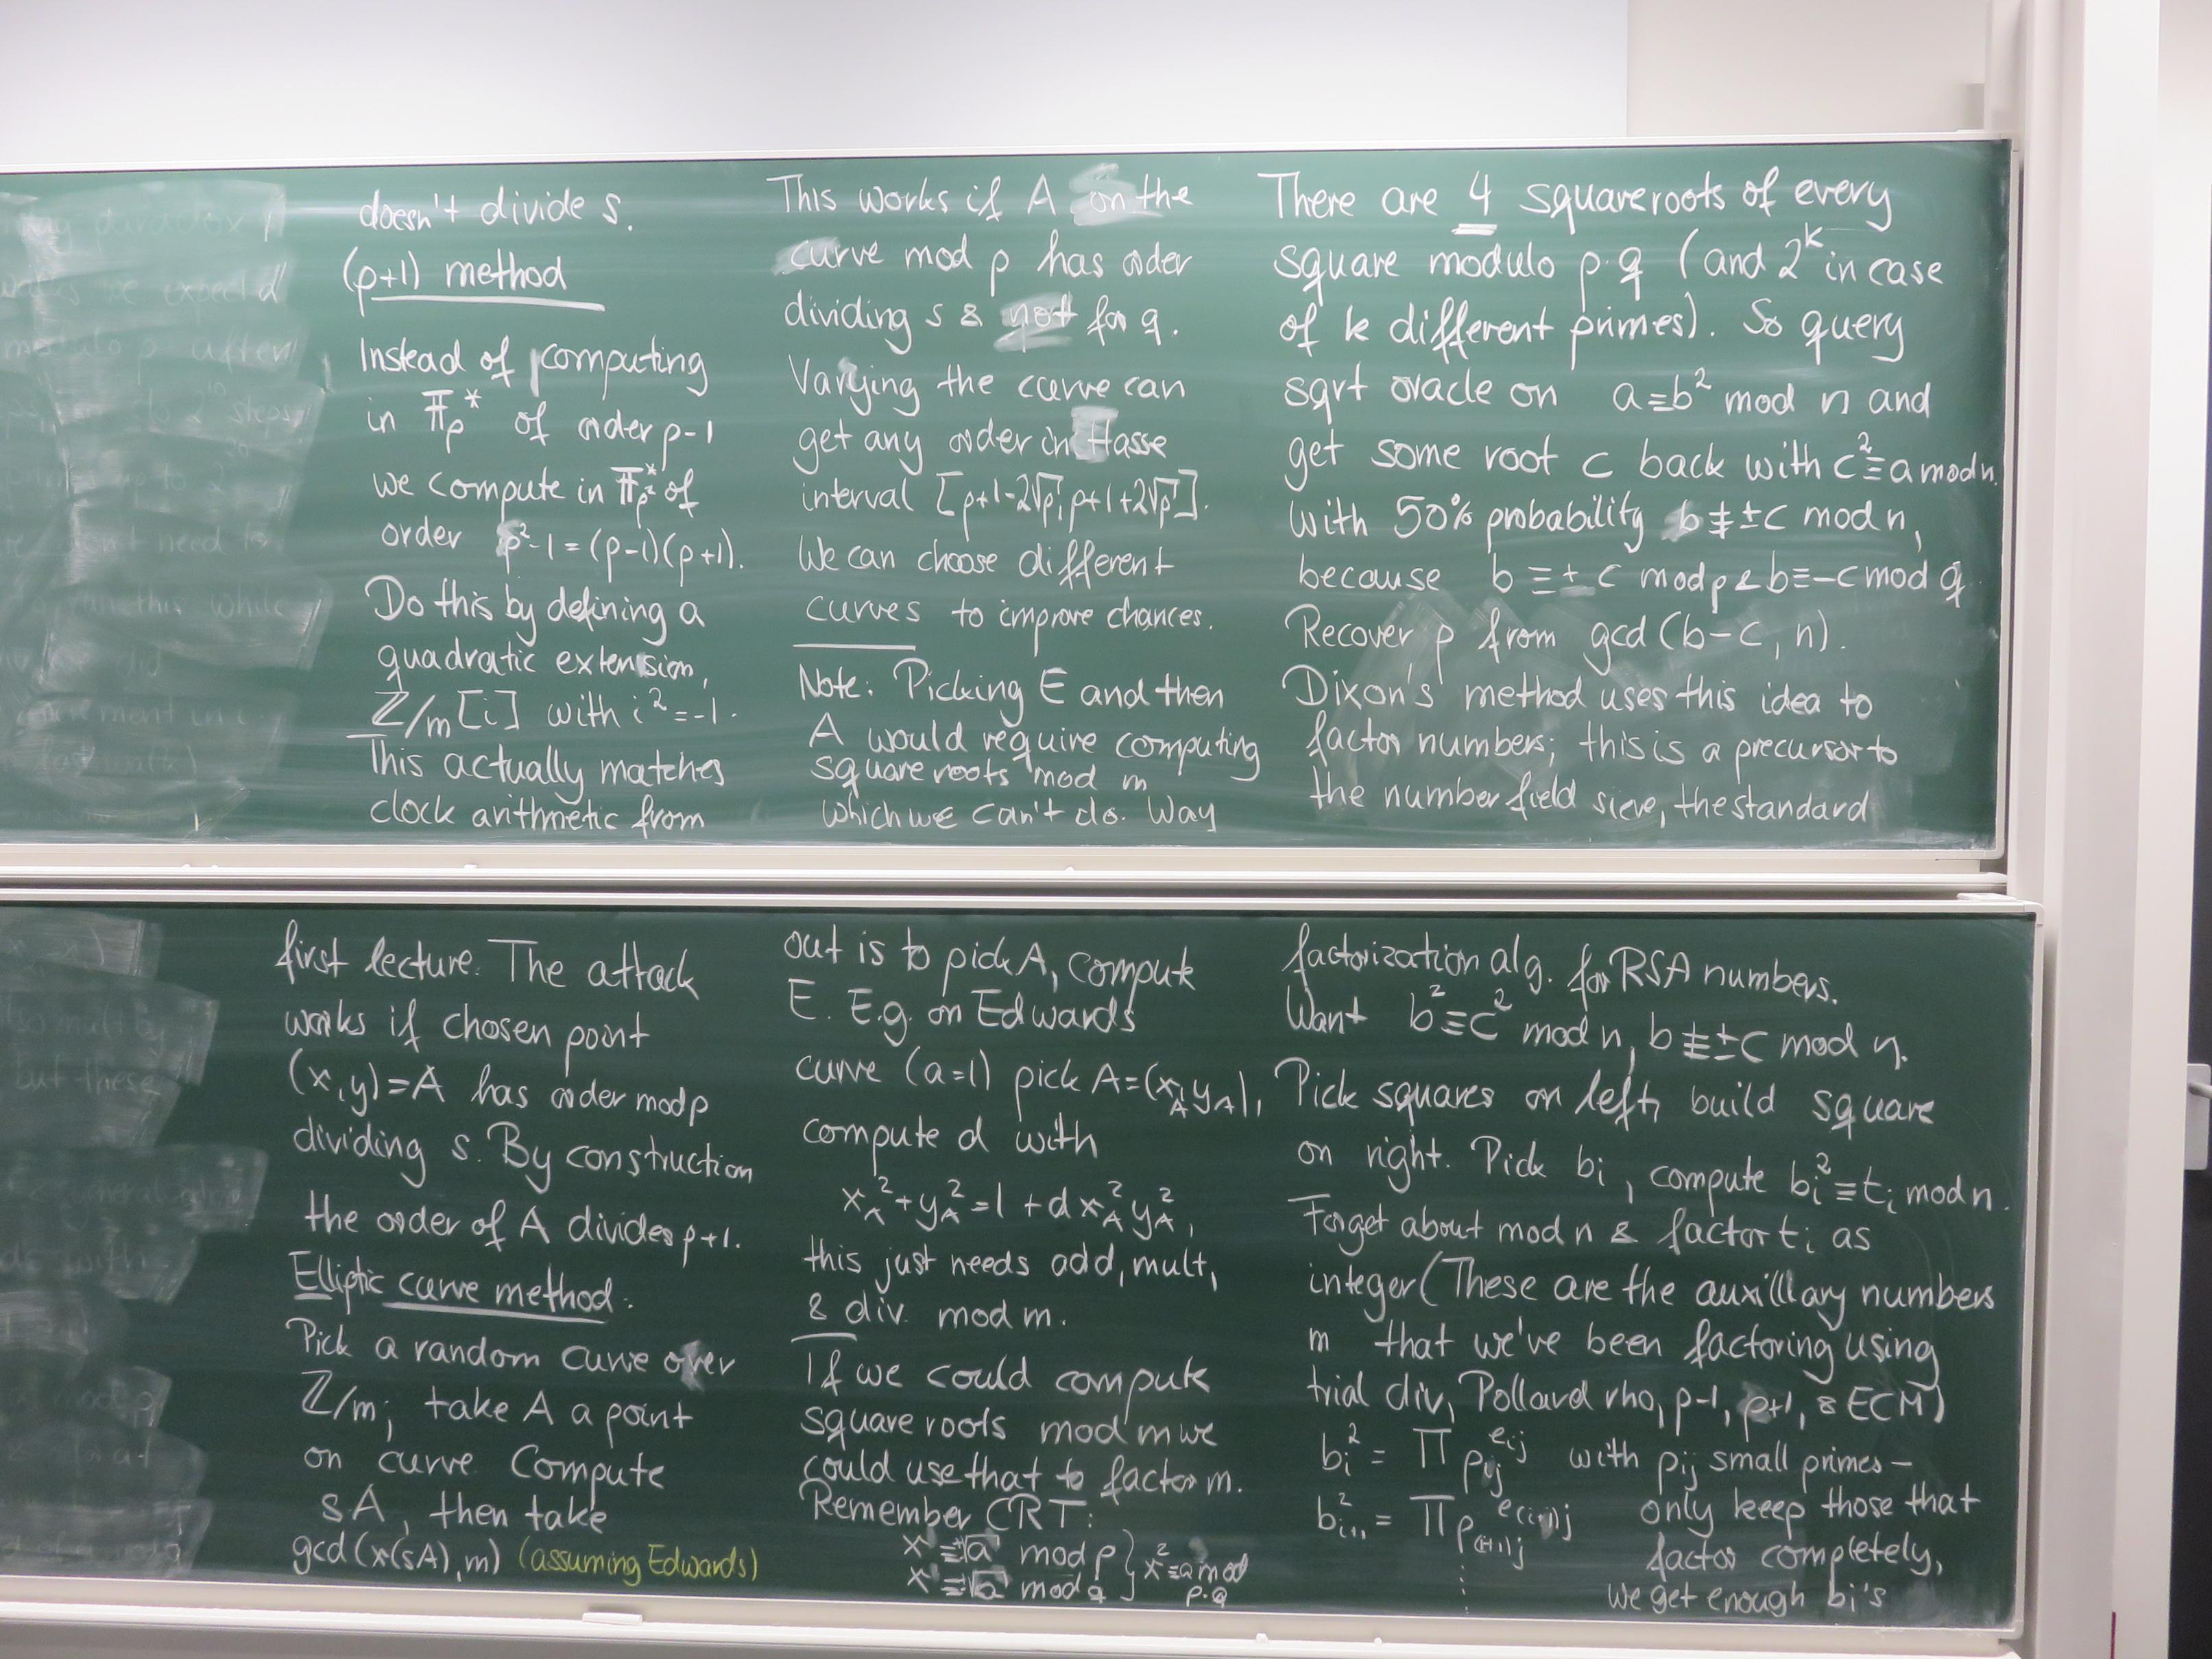 doesn't divide s.
(p+1) method
Instead of computing
in 𝔽p* of order p-1
we compute in 𝔽p²* of
order p²-1 = (p-1)(p+1).
Do this by defining a
quadratic extension,
ℤ/m[i] with i² = -1.
This actually matches
clock arithmetic from
first lecture. The attack
works if chosen point
(x,y)=A has order mod p
dividing s. By construction
the order of A divides p+1.
Elliptic curve method:
Pick a random curve over
ℤ/m; take A a point
on curve. Compute
sA, then take
gcd(x(sA),m) (assuming Edwards)
This works if A on the
curve mod p has order
dividing s & not for q.
Varying the curve can
get any order in Hasse
interval [p+1-2√p, p+1+2√p].
We can choose different
curves to improve chances.
Note: Picking E and then
A would require computing
square roots mod m
which we can't do. Way
out is to pick A, compute
E. E.g. on Edwards
curve (a=1) pick A=(x_A, y_A),
compute d with
x_A² + y_A² = 1 + d x_A² y_A²,
this just needs add, mult,
& div. mod m.
If we could compute
square roots mod m we
could use that to factor m.
Remember CRT:
x ≡ √a mod p } x² ≡ a mod
x ≡ √a mod q } p·q
There are 4 squareroots of every
square modulo p·q (and 2^k in case
of k different primes). So query
sqrt oracle on a ≡ b² mod n and
get some root c back with c² ≡ a mod n.
With 50% probability b ≢ ±c mod n,
because b ≡ + c mod p & b ≡ -c mod q
Recover p from gcd(b-c, n).
Dixon's method uses this idea to
factor numbers; this is a precursor to
the number field sieve, the standard
factorization alg. for RSA numbers.
Want b² ≡ c² mod n, b ≢ ±c mod n.
Pick squares on left, build square
on right. Pick bi, compute bi² ≡ ti mod n.
Forget about mod n & factor ti as
integer (These are the auxilliary numbers
m that we've been factoring using
trial div, Pollard rho, p-1, p+1, & ECM)
bi² = ∏ pij^eij with pij small primes –
bi+1² = ∏ p(i+1)j^e(i+1)j only keep those that
⋮ factor completely,
we get enough bi's